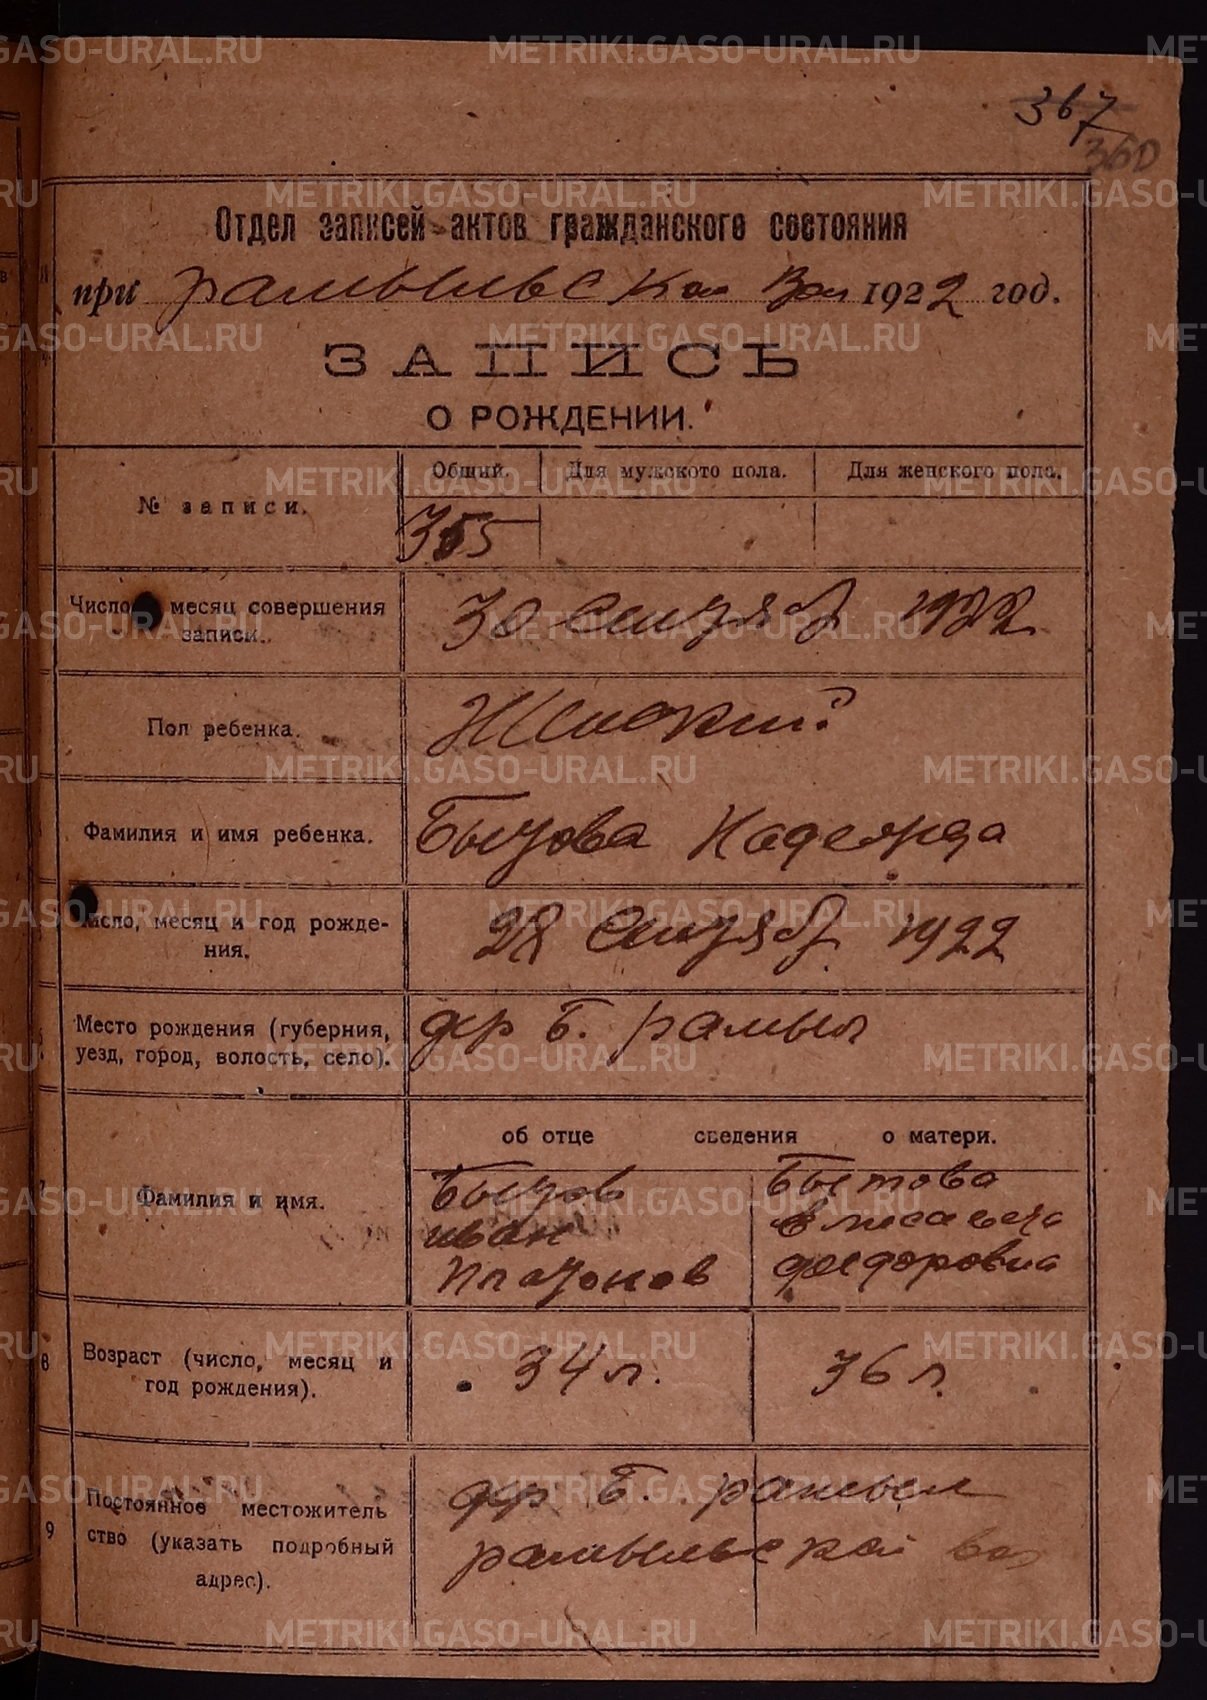 367
360
Отдел записей актов гражданского состояния
при Рамыльской Вол 1922 год.
ЗАПИСЬ
О РОЖДЕНИИ.
№ записи.
Общий. Для мужского пола. Для женского пола.
355
Число месяц совершения
записи.
30 Сентяб 1922
Пол ребенка.
Женский
Фамилия и имя ребенка.
Бытова Надежда
число, месяц и год рожде-
ния.
28 Сентяб. 1922
Место рождения (губерния,
уезд, город, волость, село).
дер Б. Рамыл
об отце сведения о матери.
Фамилия и имя.
Бытов
иван
Платонов
Бытова
федоровна
8
Возраст (число, месяц и
год рождения).
34 л.
36 л.
9
Постоянное местожитель
ство (указать подробный
адрес).
дер Б. Рамыл
Рамыльской вол
METRIKI.GASO-URAL.RU